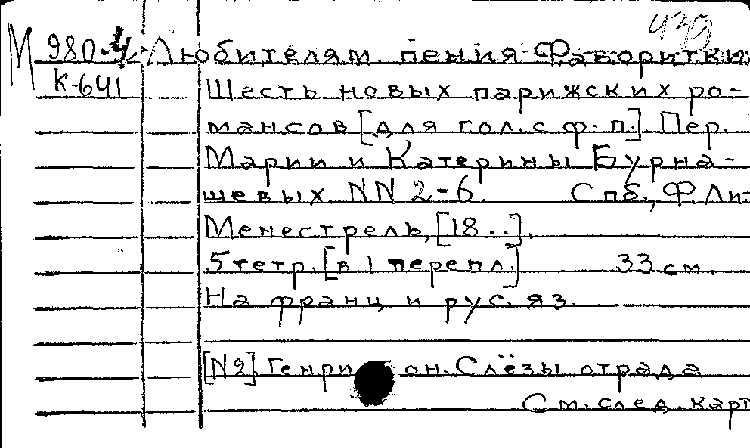 439
М 980-4 Любителям пения Фаворитки.
К-641 Шесть новых парижских ро-
мансов [для гол. с ф.-п.]. Пер.
Марии и Катерины Бурна-
шевых NN 2-6. Спб., Ф Ли-
Менестрель, [18..].
5 тетр. [в 1 перепл.] 33 см.
На франц и рус. яз.
[N2]. Генри он. Слёзы отрада
См. след. карт